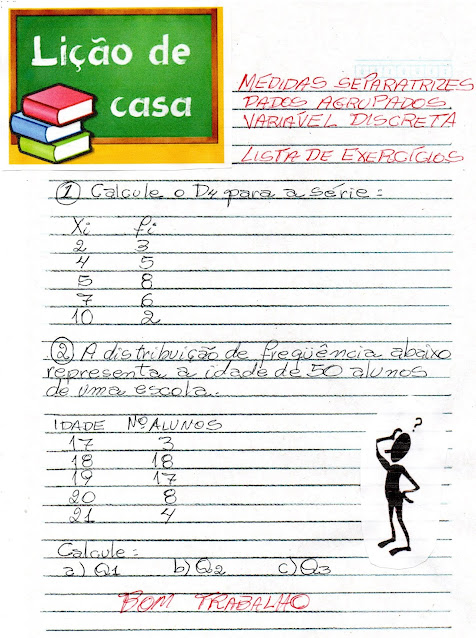 Lição de
casa
MEDIDAS SEPARATRIZES
DADOS AGRUPADOS
VARIÁVEL DISCRETA
LISTA DE EXERCÍCIOS
1 Calcule o D4 para a série:
Xi fi
2 3
4 5
5 8
7 6
10 2
2 A distribuição de freqüência abaixo
representa a idade de 50 alunos
de uma escola.
IDADE Nº ALUNOS
17 3
18 18
19 17
20 8
21 4
?
Calcule:
a) Q1 b) Q2 c) Q3
BOM TRABALHO